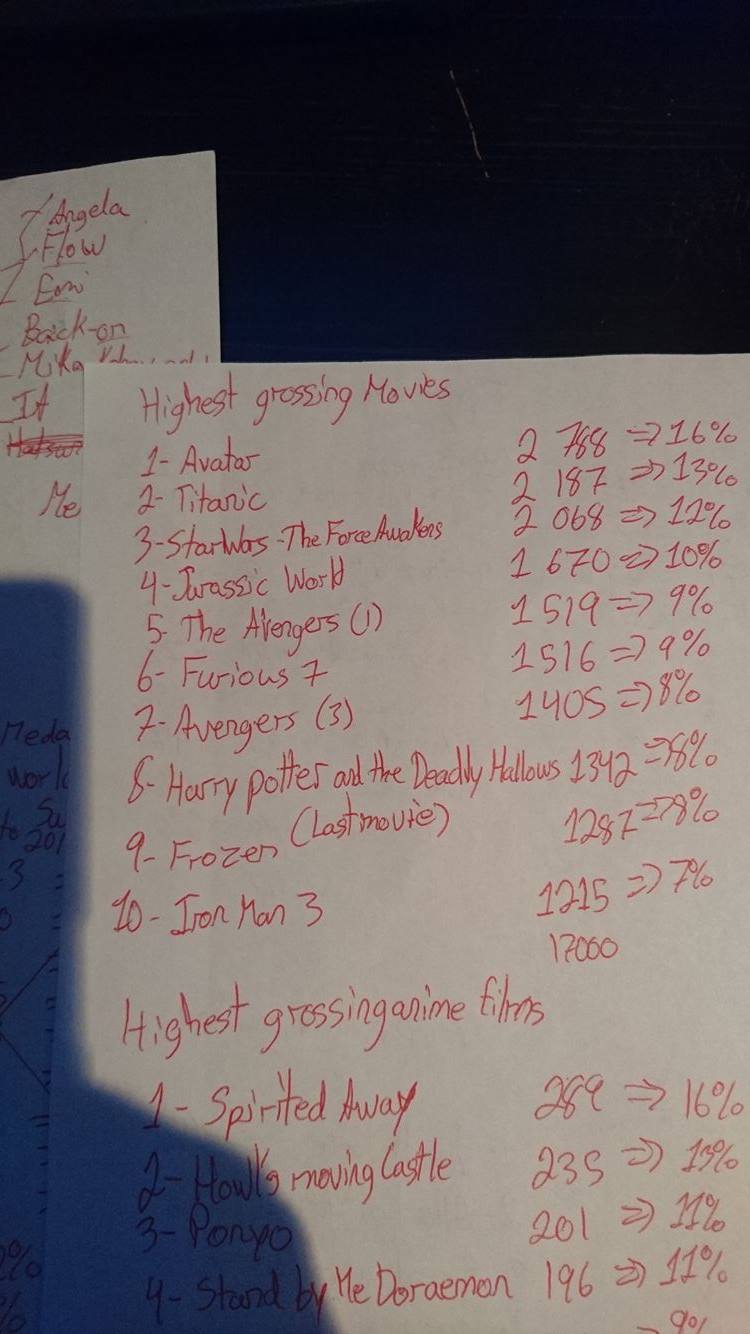 Angela
Flow
Back-on
Mika
Highest grossing Movies
1- Avatar 2 788 => 16%
2- Titanic 2 187 => 13%
3- Star Wars - The Force Awakens 2 068 => 12%
4- Jurassic World 1 670 => 10%
5- The Avengers (1) 1 519 => 9%
6- Furious 7 1 516 => 9%
7- Avengers (3) 1405 => 8%
8- Harry potter and the Deadly Hallows 1342 => 8%
(Last movie)
9- Frozen 1287 => 8%
10- Iron Man 3 1215 => 7%
17000
Highest grossing anime films
1- Spirited Away 289 => 16%
2- Howl's moving Castle 235 => 13%
3- Ponyo 201 => 11%
4- Stand by Me Doraemon 196 => 11%
=> 9%
Me
Meda
worl
to Su
201
3